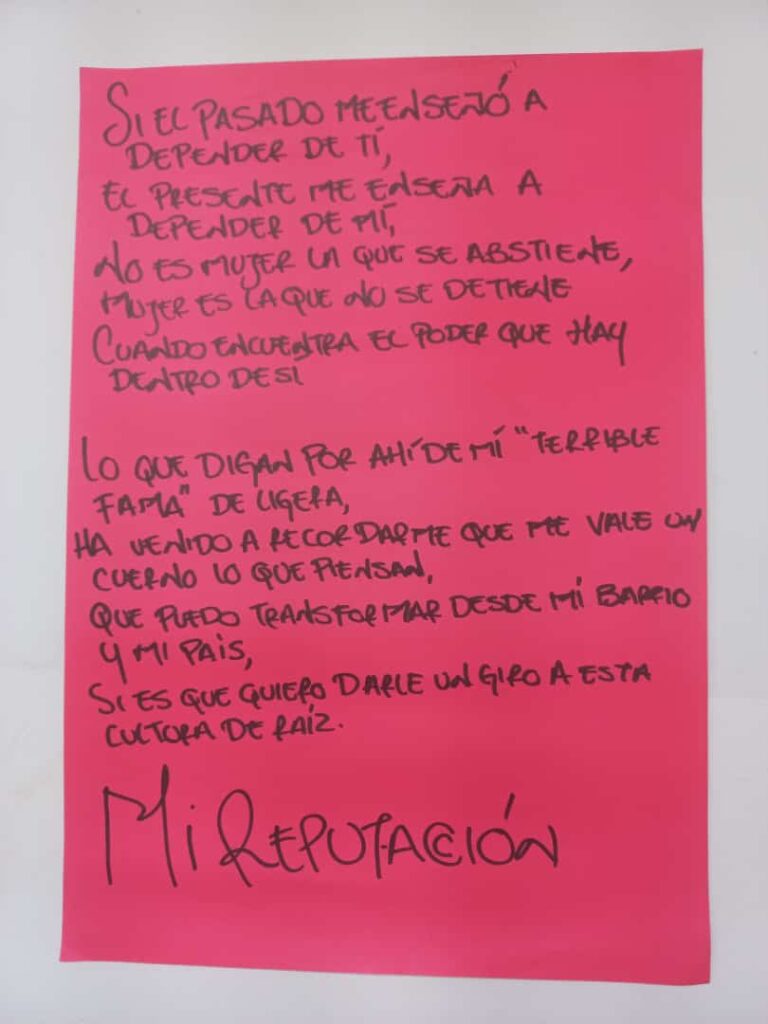 SI EL PASADO ME ENSEÑÓ A
DEPENDER DE TÍ,
EL PRESENTE ME ENSEÑA A
DEPENDER DE MÍ,
NO ES MUJER LA QUE SE ABSTIENE,
MUJER ES LA QUE NO SE DETIENE
CUANDO ENCUENTRA EL PODER QUE HAY
DENTRO DE SÍ
LO QUE DIGAN POR AHÍ DE MÍ "TERRIBLE
FAMA" DE LIGERA,
HA VENIDO A RECORDARME QUE ME VALE UN
CUERNO LO QUE PIENSAN,
QUE PUEDO TRANSFORMAR DESDE MÍ BARRIO
Y MI PAÍS,
SI ES QUE QUIERO DARLE UN GIRO A ESTA
CULTURA DE RAÍZ.
MI REPUTACCIÓN